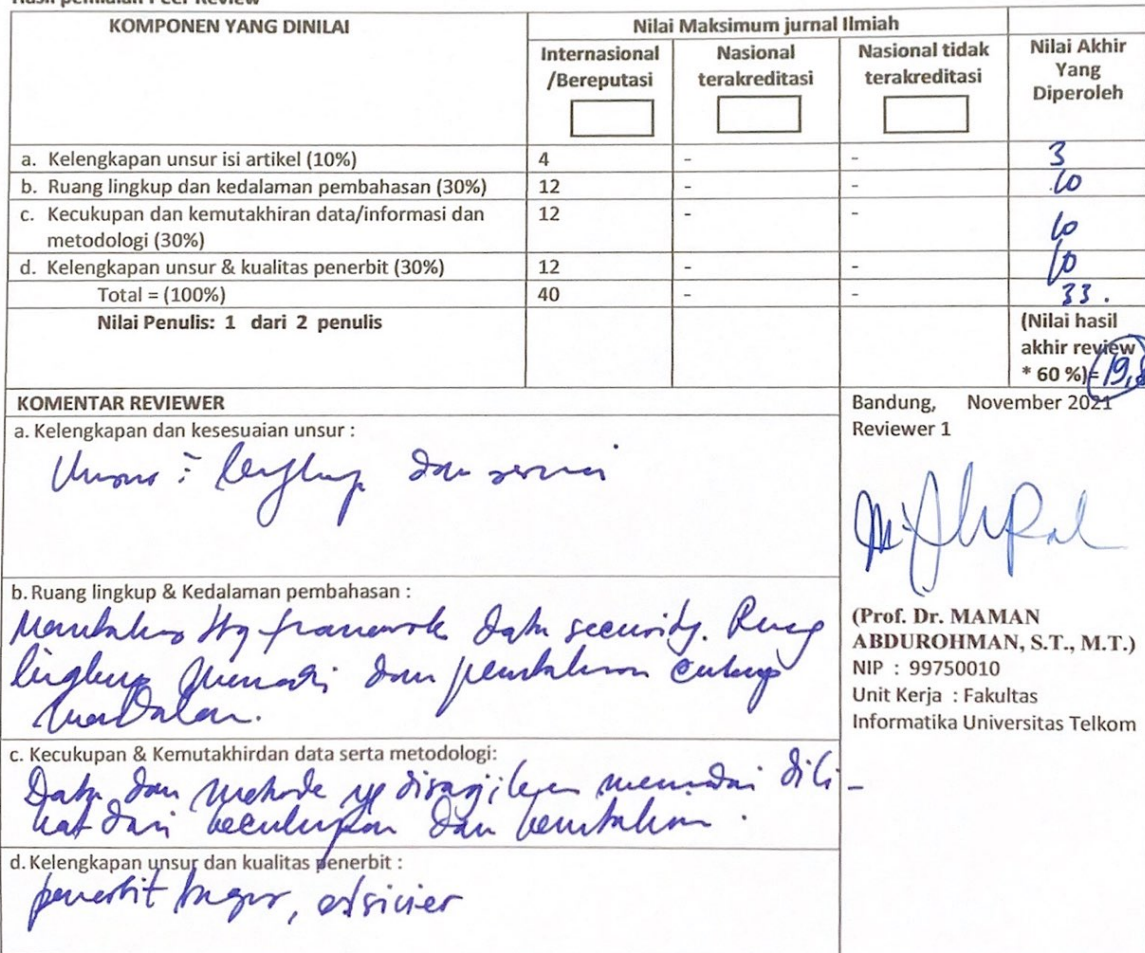 Hasil penilaian Peer Review
KOMPONEN YANG DINILAI
Nilai Maksimum jurnal Ilmiah
Internasional
/Bereputasi
Nasional
terakreditasi
Nasional tidak
terakreditasi
Nilai Akhir
Yang
Diperoleh
a. Kelengkapan unsur isi artikel (10%) 4 - - 3
b. Ruang lingkup dan kedalaman pembahasan (30%) 12 - - 10
c. Kecukupan dan kemutakhiran data/informasi dan
metodologi (30%) 12 - - 10
d. Kelengkapan unsur & kualitas penerbit (30%) 12 - - 10
Total = (100%) 40 - - 33.
Nilai Penulis: 1 dari 2 penulis
(Nilai hasil
akhir review
* 60 %)= 19,8
KOMENTAR REVIEWER
a. Kelengkapan dan kesesuaian unsur :
Unsur : lengkap dan sesuai
b. Ruang lingkup & Kedalaman pembahasan :
Membahas ttg framework data security. Ruang
lingkup memadai dan pembahasan cukup
mendalam.
c. Kecukupan & Kemutakhirdan data serta metodologi:
Data dan metode yg disajikan memadai dili-
hat dari kecukupan dan
d. Kelengkapan unsur dan kualitas penerbit :
penerbit bagus, elsivier
Bandung, November 2021
Reviewer 1
(Prof. Dr. MAMAN
ABDUROHMAN, S.T., M.T.)
NIP : 99750010
Unit Kerja : Fakultas
Informatika Universitas Telkom